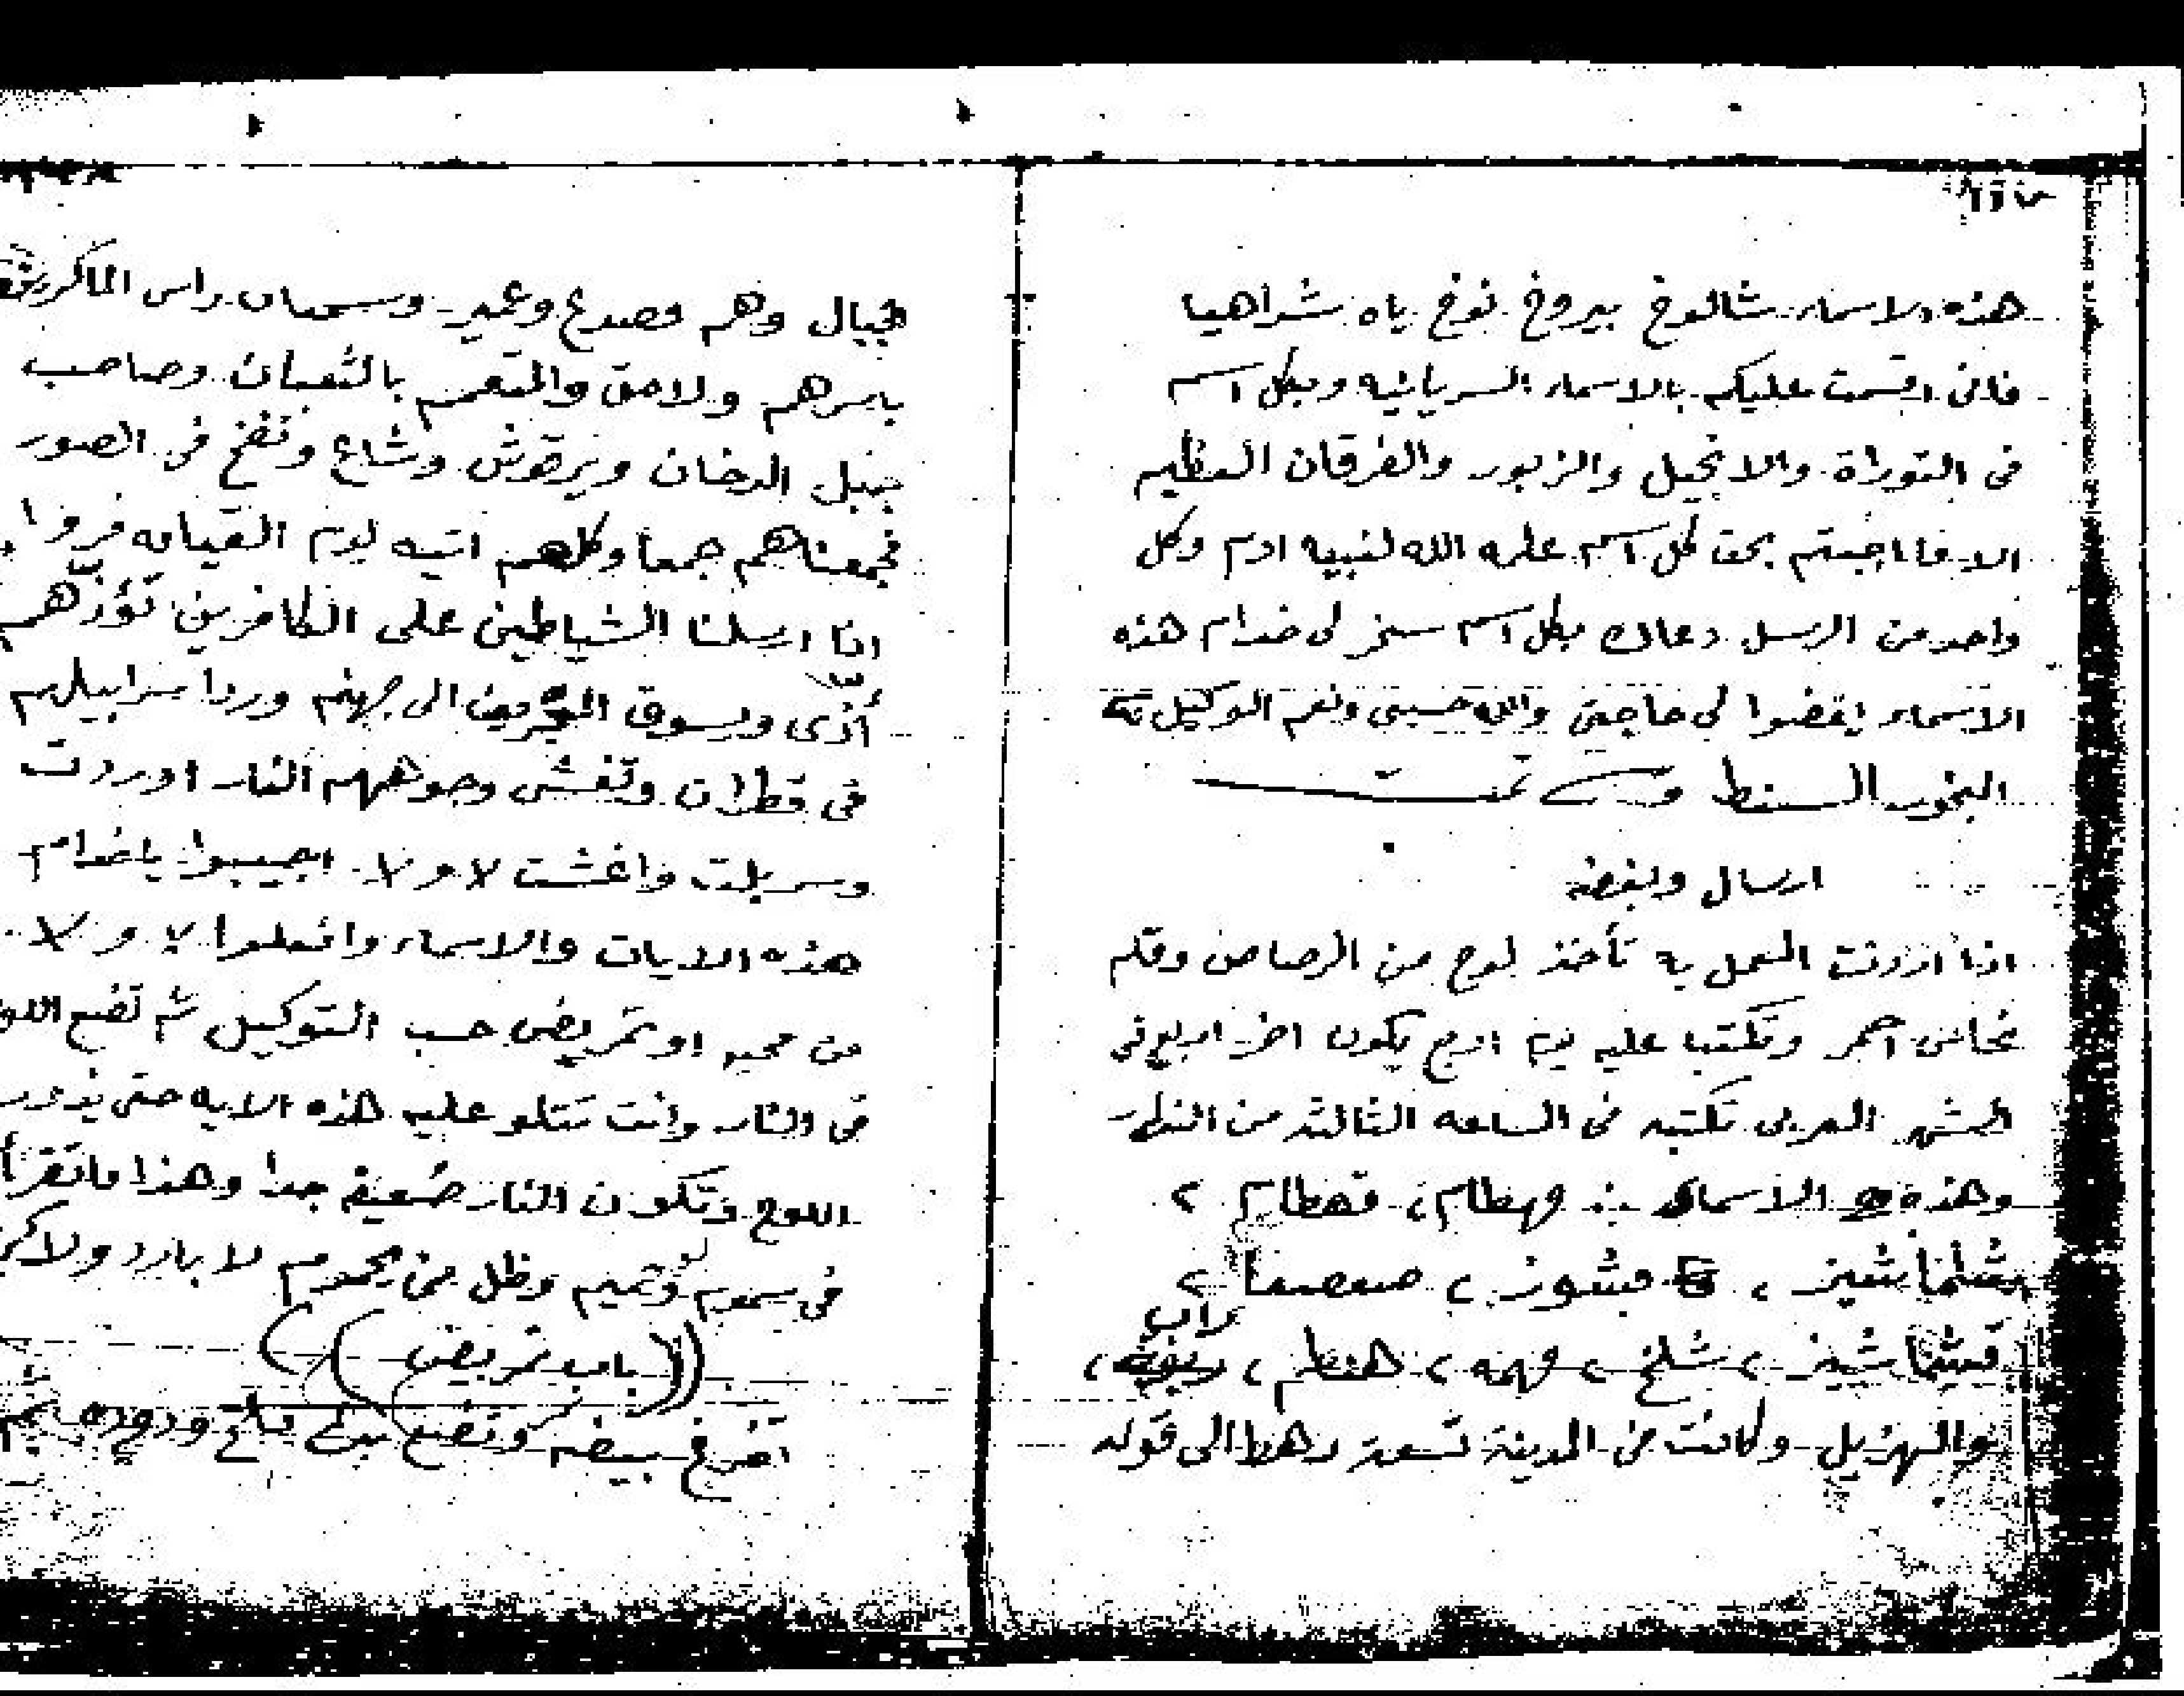 هذه الاسماء شالوخ بيروخ نوخ ياه شراهيا
فانى اقسمت عليكم بالاسماء السريانيه وبكل اسم
فى التوراة والانجيل والزبور والفرقان العظيم
الا ما اجبتم بحق كل اسم علمه الله لنبيه ادم وكل
واحد من الرسل دعاك بكل اسم سخر لى خدام هذه
الاسماء يقضوا لى حاجتى والله حسبى ونعم الوكيل
البخور السنط تمت
ارسال وبغضه
اذا اردت العمل به تأخذ لوح من الرصاص وقلم
نحاس احمر وتكتب عليه يوم يكون اخر اربع فى
الشهر العربى تكتبه فى الساعه الثالثة من النهار
وهذه الاسماء مهطام ، قهطام ٢
شلماشيز ، مشوز ، صعصعا ٢
قشماشيز ، شلخ ، مهمه ، هطم ، راب
والهزيل وكانت فى المدينة تسعة رهط الى قوله
الجبال وهم وعمير راس الماكرين
باسرهم ولاحق والمتعمم بالثعبان وصاحب
جبل الدخان وبرقوش وشاع ونفخ فى الصور
فجمعناهم جمعا وكلهم اتيه يوم القيامه فردا
انا ارسلنا الشياطين على الكافرين تؤزهم
أزى ويسوق المجرمين الى جهنم وردا سرابيلهم
فى قطران وتغشى وجوههم النار اوردت
وسربلت واغشت اجيبوا ياخدام
هذه الايات والاسماء وافعلوا
من محبه او تمريض حسب التوكيل ثم تضع اللوح
فى النار وانت تتلو عليه هذه الايه حتى يذوب
اللوح وتكون النار ضعيفه جدا وهذا ما تقرأ
فى سموم وحميم وظل من يحموم لا بارد ولا
((باب تمريض))
بيضه وتضع ملح